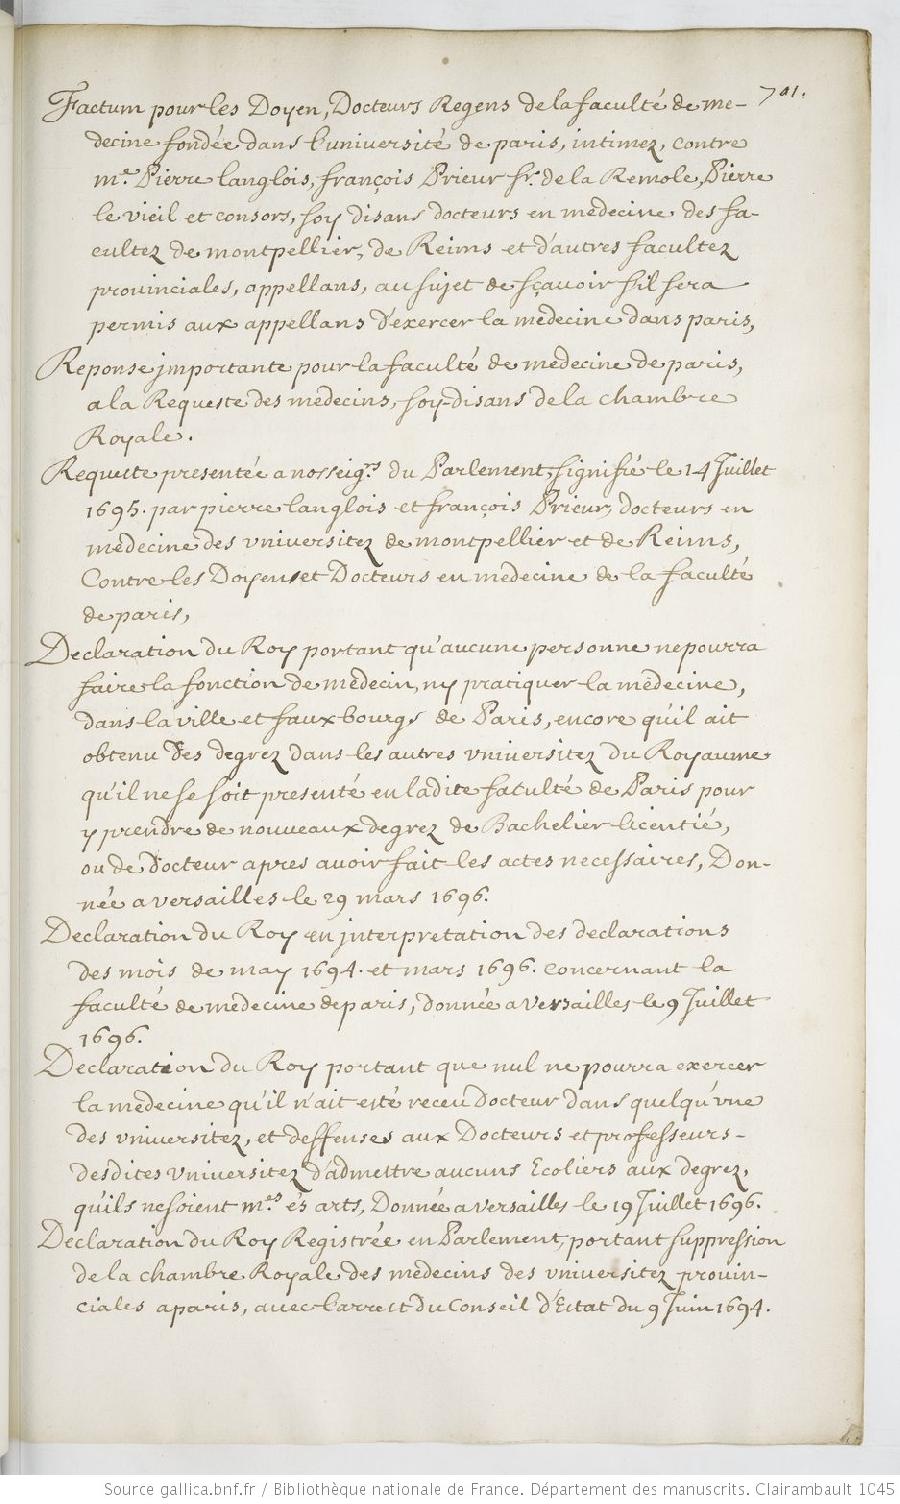 701.
Factum pour les Doyen, Docteurs Regens de la faculté de me-
decine fondée dans l'université de paris, intimez, contre
me. Pierre langlois, françois Prieur sr. de la Remole, Pierre
le vieil et consors, soy disans docteurs en medecine des fa-
cultez de montpellier, de Reims et d'autres facultez
prouinciales, appellans, au sujet de sçauoir s'il sera
permis aux appellans d'exercer la medecine dans paris,
Reponse importante pour la faculté de medecine de paris,
a la Requeste des medecins, soy-disans de la chambre
Royale.
Requeste presentée a nosseigrs. du Parlement, signifié le 14 Juillet
1695. par pierre langlois et françois Prieur, docteurs en
medecine des vniuersitez de montpellier et de Reims,
Contre les Doyens et Docteurs en medecine de la faculté
de paris,
Declaration du Roy portant qu'aucune personne ne pourra
faire la fonction de medecin, ny pratiquer la medecine,
dans la ville et faux bourgs de Paris, encore qu'il ait
obtenu des degrez dans les autres vniuersitez du Royaume
qu'il ne se soit presenté en ladite faculté de Paris pour
y prendre de nouueaux degrez de Bachelier licentié,
ou de Docteur apres auoir fait les actes necessaires, Don-
née a versailles le 29 mars 1696.
Declaration du Roy en interpretation des declarations
des mois de may 1694. et mars 1696. concernant la
faculté de medecine de paris, donnée a Versailles le 9 Juillet
1696.
Declaration du Roy portant que nul ne pourra exercer
la medecine qu'il n'ait esté receu Docteur dans quelqu'vne
des vniuersitez, et deffenses aux Docteurs et professeurs-
desdites vniuersitez d'admettre aucuns Ecoliers aux degrez,
qu'ils ne soient mes és arts, Donnée a versailles le 19 Juillet 1696.
Declaration du Roy Registrée en Parlement, portant suppression
de la chambre Royale des medecins des vniuersitez prouin-
ciales a paris, auec l'arrest du Conseil d'Estat du 9 Juin 1694.
Source gallica.bnf.fr / Bibliothèque nationale de France. Département des manuscrits. Clairambault 1045